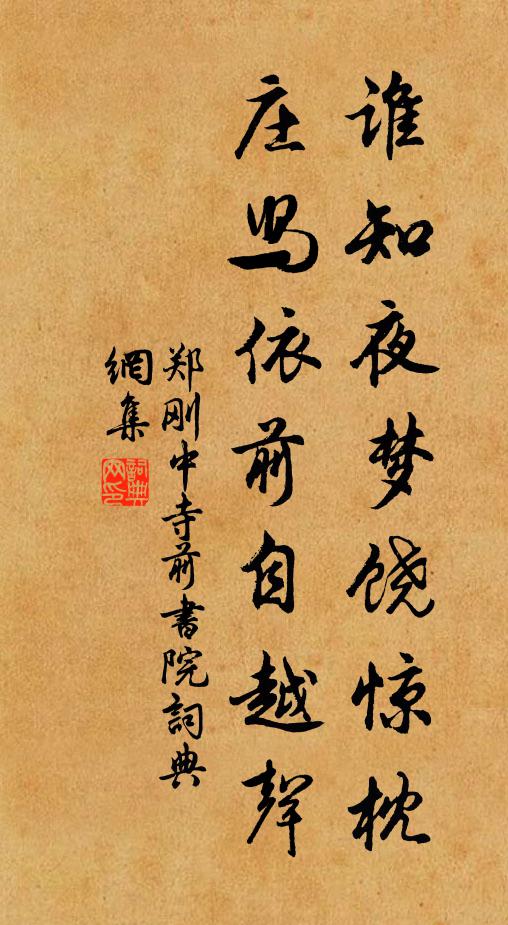 谁知夜梦饶惊枕
庄舄依前自越声
郑刚中寺前书院词典
網集
詞典網印